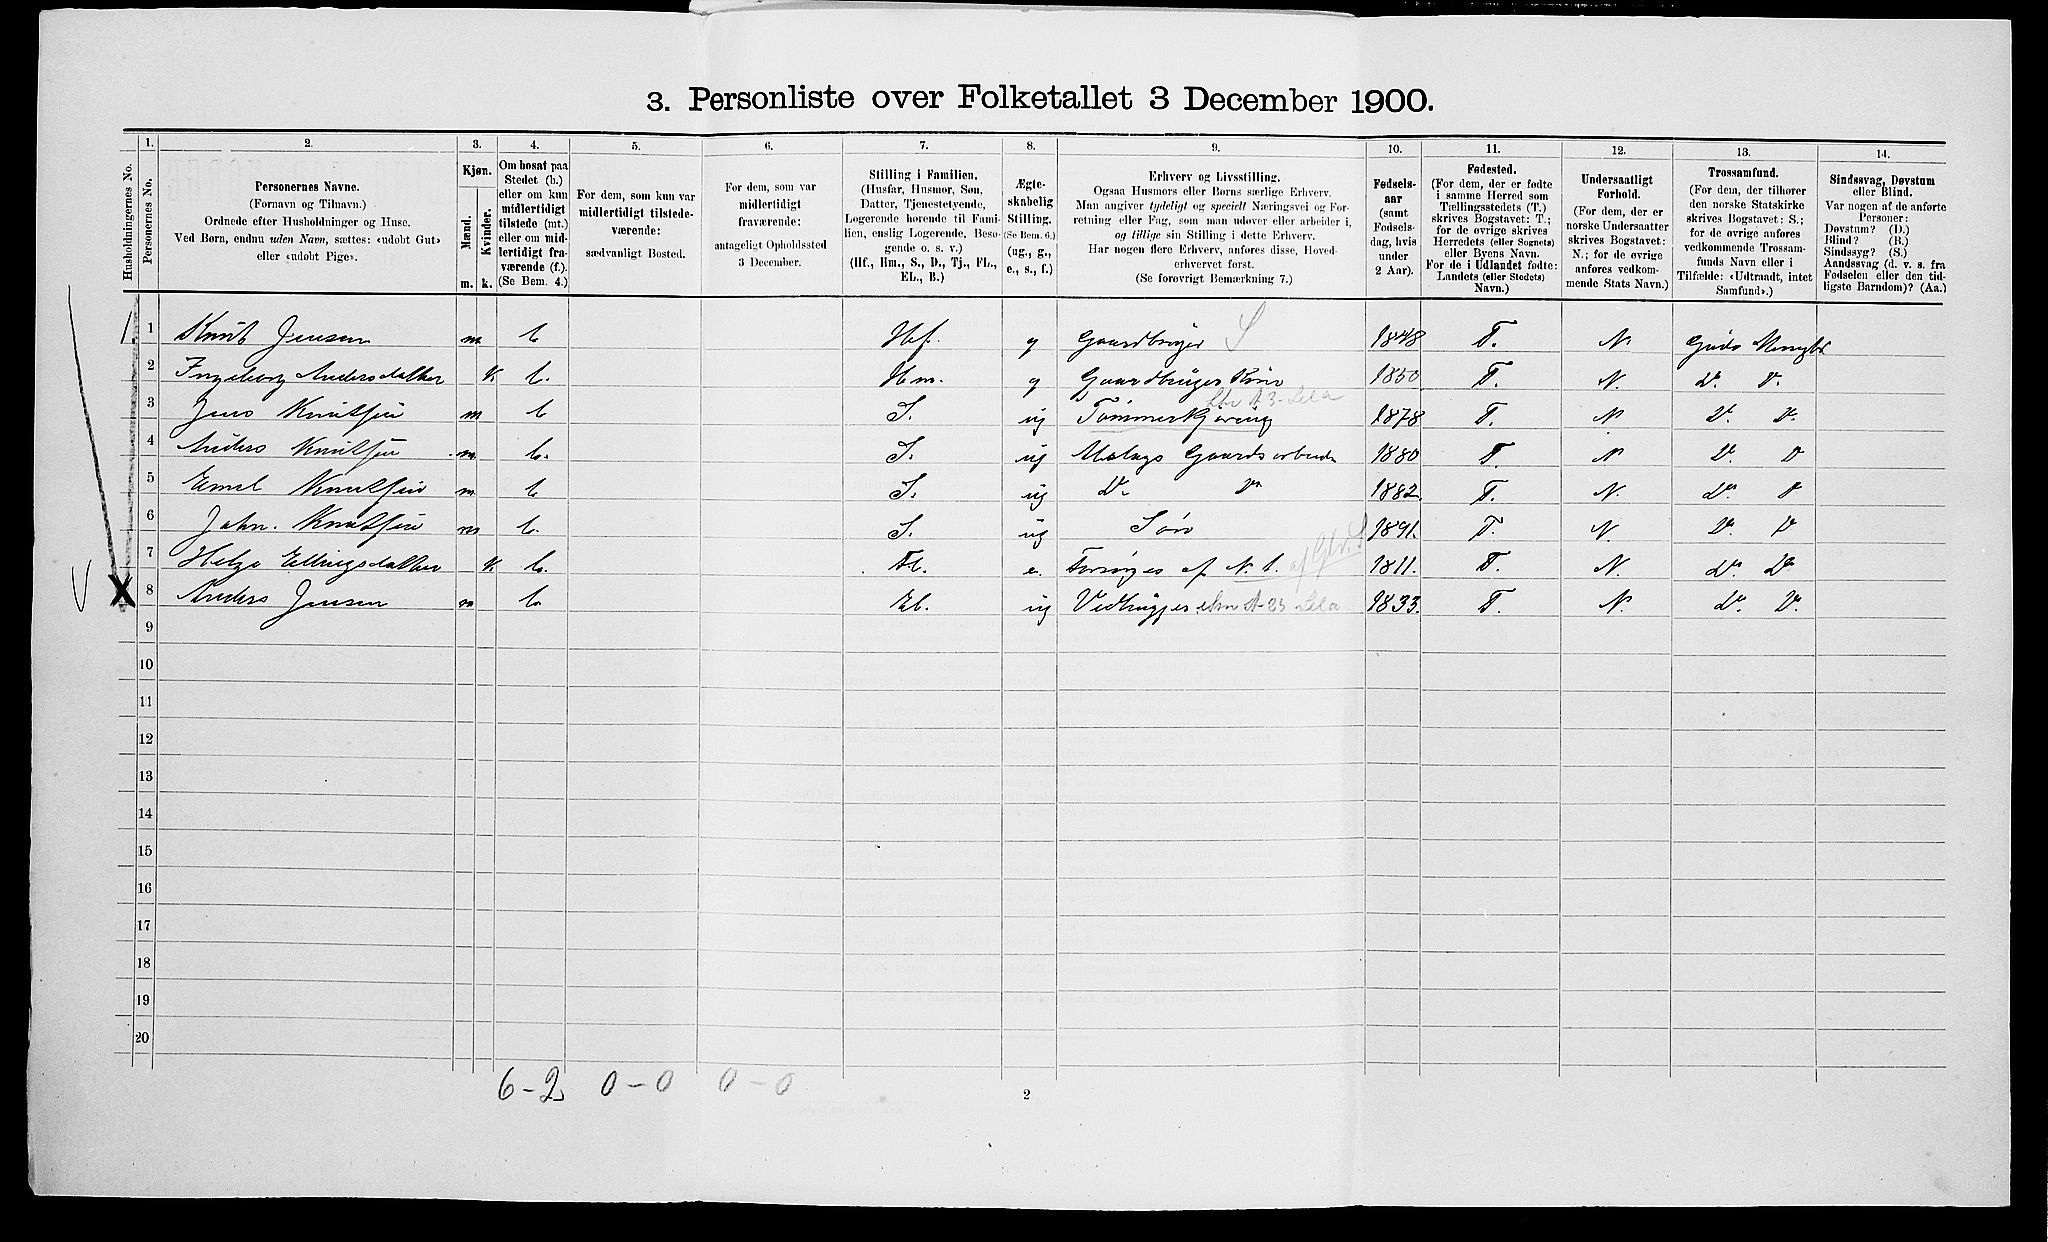 3. Personliste over Folketallet 3 December 1900.
1. 2. 3. 4. 5. 6. 7. 8. 9. 10. 11. 12. 13. 14.
Husholdningernes No.
Personernes No.
Personernes Navne.
(Fornavn og Tilnavn.)
Ordnede efter Husholdninger og Huse.
Ved Børn, endnu uden Navn, sættes: «udøbt Gut»
eller «udøbt Pige».
Kjøn.
Mænd.
Kvinder.
m. k.
Om bosat paa
Stedet (b.)
eller om kun
midlertidigt
tilstede (mt.)
eller om mid-
lertidigt fra-
værende (f.)
(Se Bem. 4.)
For dem, som kun var
midlertidigt tilstede-
værende:
sædvanligt Bosted.
For dem, som var
midlertidigt
fraværende:
antageligt Opholdssted
3 December.
Stilling i Familien.
(Husfar, Husmor, Søn,
Datter, Tjenestetyende,
Logerende hørende til Fami-
lien, enslig Logerende, Besø-
gende o. s. v.)
(Hf., Hm., S., D., Tj., FL.,
EL., B.)
Ægte-
skabelig
Stilling.
(Se Bem. 6.)
(ug., g.,
e., s., f.)
Erhverv og Livsstilling.
Ogsaa Husmors eller Børns særlige Erhverv.
Man angiver tydeligt og specielt Næringsvei og For-
retning eller Fag, som man udøver eller arbeider i,
og tillige sin Stilling i dette Erhverv.
Har nogen flere Erhverv, anføres disse, Hoved-
erhvervet først.
(Se forøvrigt Bemærkning 7.)
Fødsels-
aar
(samt
Fødsels-
dag, hvis
under
2 Aar).
Fødested.
(For dem, der er fødte
i samme Herred som
Tællingsstedets (T.)
skrives Bogstavet: T.;
for de øvrige skrives
Herredets (eller Sognets)
eller Byens Navn.
For de i Udlandet fødte:
Landets (eller Stedets)
Navn.)
Undersaatligt
Forhold.
(For dem, der er
norske Undersaatter
skrives Bogstavet:
N.; for de øvrige
anføres vedkom-
mende Stats Navn.)
Trossamfund.
(For dem, der tilhører
den norske Statskirke
skrives Bogstavet: S.;
for de øvrige anføres
vedkommende Trossam-
funds Navn eller i
Tilfælde: «Udtraadt, intet
Samfund».)
Sindssvag, Døvstum
eller Blind.
Var nogen af de anførte
Personer:
Døvstum? (D.)
Blind? (B.)
Sindssyg? (S.)
Aandssvag (d. v. s. fra
Fødselen eller den tid-
ligste Barndom)? (Aa.)
1. 1 Knut Jensen m b Hf. g Gaardbruger S 1848 T. N. Guds Menighed
2 Ingeborg Andersdatter K b. Hm. g Gaardbruger Kone 1850 T. N. Do. Do.
3 Jens Knutsen m b S. ug Tømmerkjøring 1878 T. N Do. Do.
4 Anders Knutsen m. b. S. ug Gaardsarbeide 1880 T. N Do. Do
5 Emel Knutsen m b S. ug Do. Do 1882 T. N. Do. Do
6 John. Knutsen m b. S. ug Søn 1891. T. N. Do. Do
7 Helge Ellingsdatter K b. Fl. e. Forsørges af N. 1. 1811. T. N. Do. Do.
X 8 Anders Jensen m b. El. ug Vedhugger 1833. T. N. Do. Do.
9
10
11
12
13
14
15
16
17
18
19
20
6 - 2 0 - 0 0 - 0
2